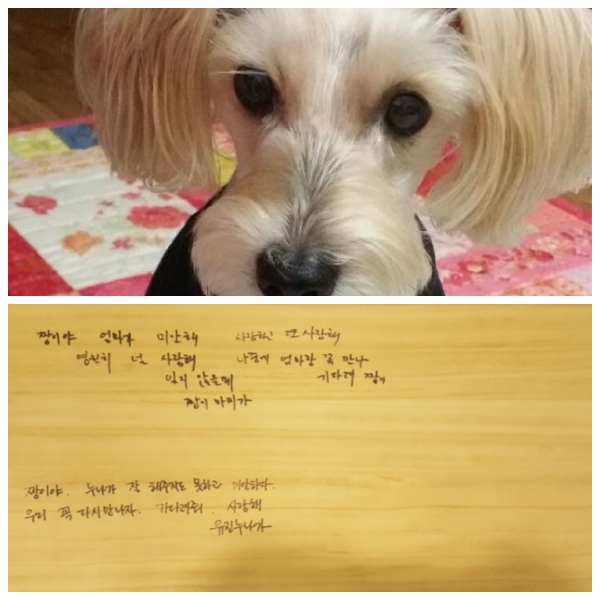 짱이야 엄마가 미안해 사랑하고 또 사랑해
영원히 널 사랑해 나중에 엄마랑 꼭 만나
잊지 않을께 기다려 짱이
짱이
짱이야. 누나가 잘 해주지도 못하고 미안하다.
우리 꼭 다시만나자. 기다려줘. 사랑해
유진누나가